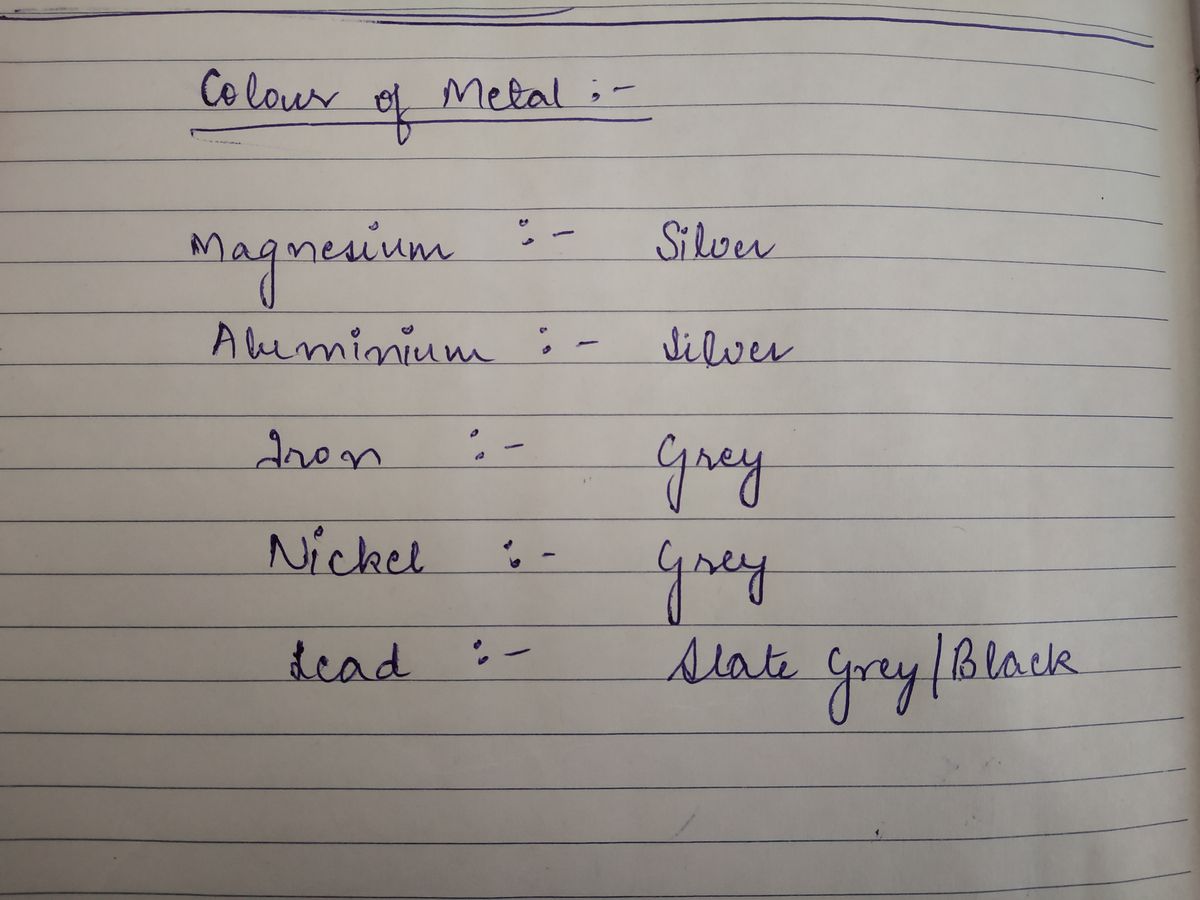 Colour of Metal :-
Magnesium :- Silver
Aluminium :- Silver
Iron :- Grey
Nickel :- Grey
Lead :- Slate Grey/Black